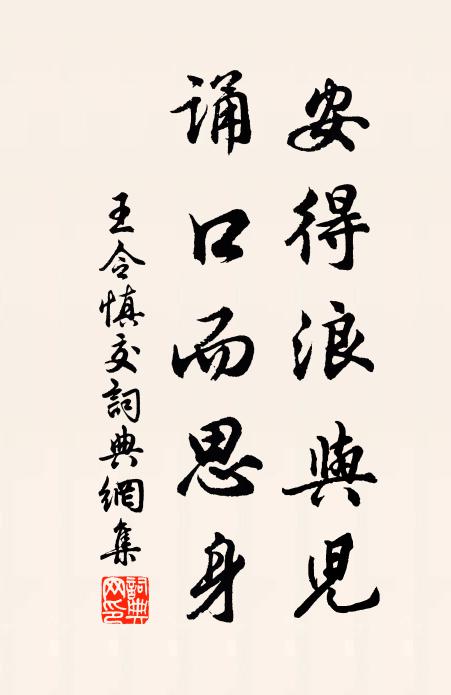 安得浪與兒
誦口而思身
王令慎交詞典網集
詞典網印